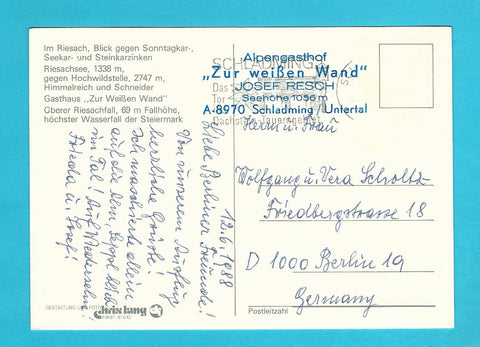 Im Riesach, Blick gegen Sonntagkar-,
Seekar- und Steinkarzinken
Riesachsee, 1338 m,
gegen Hochwildstelle, 2747 m,
Himmelreich und Schneider
Gasthaus „Zur Weißen Wand"
Oberer Riesachfall, 69 m Fallhöhe,
höchster Wasserfall der Steiermark
12.6.1988
Liebe Berliner Freunde!
Von unserem Ausflug
herzliche Grüße!
Ich marschierte allein
auf die Alm, Seppl blieb
im Tal! Auf Wiedersehn
Frieda u. Josef!
GESTALTUNG UND FOTO
Chris lang
SCHLADMING
Alpengasthof
„Zur weißen Wand"
JOSEF RESCH
Seehöhe 1056 m
A-8970 Schladming / Untertal
Das
Tor
Dachstein-Tauerngebiet
Herrn u. Frau
Wolfgang u. Vera Scholtz
Friedbergstrasse 18
D 1000 Berlin 19
Germany
Postleitzahl